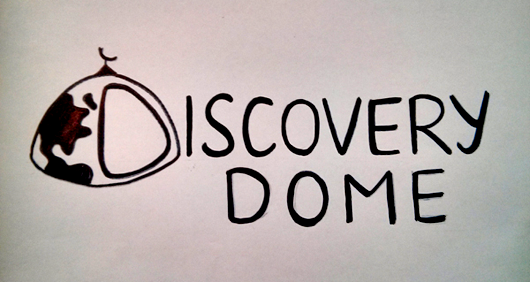 DISCOVERY
DOME